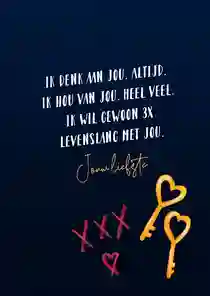 IK DENK AAN JOU. ALTIJD.
IK HOU VAN JOU. HEEL VEEL.
IK WIL GEWOON 3X
LEVENSLANG MET JOU.
Jouw liefste
XXX